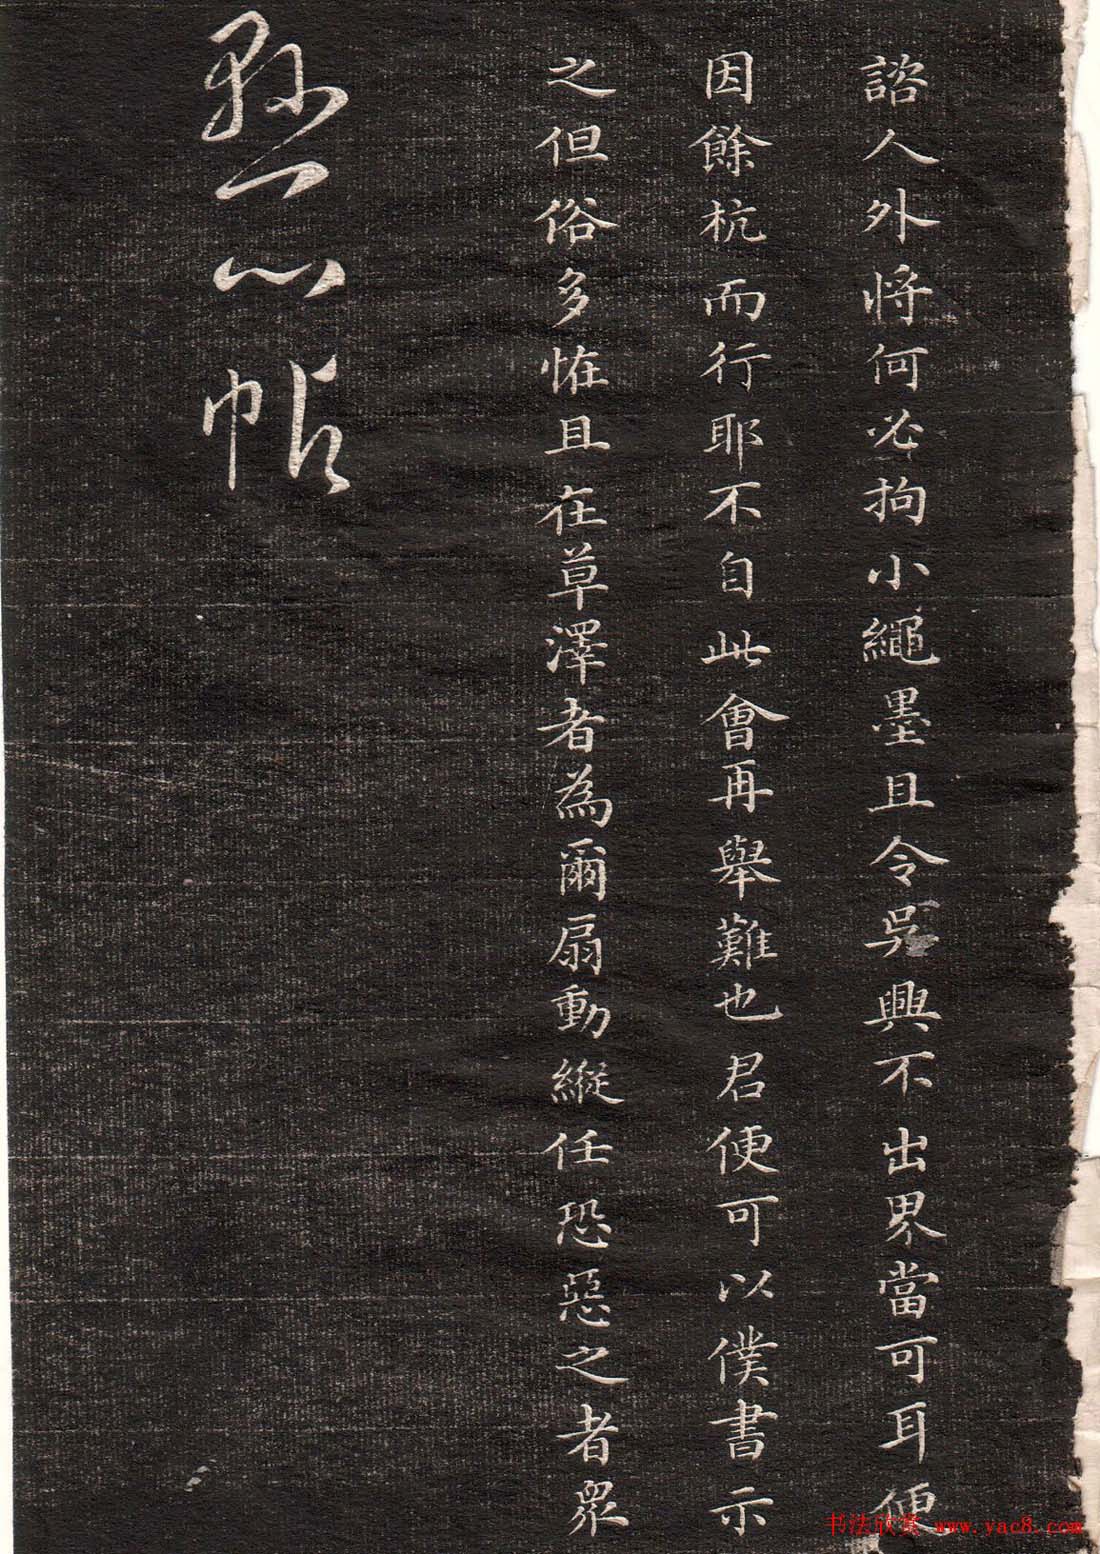 諮人外将何必拘小繩墨且令吳興不出界當可耳便
因餘杭而行耶不自此會再舉難也君便可以僕書示
之但俗多恠且在草澤者為爾扇動縱任恐惡之者衆
懸心帖
书法欣赏 www.yac8.com